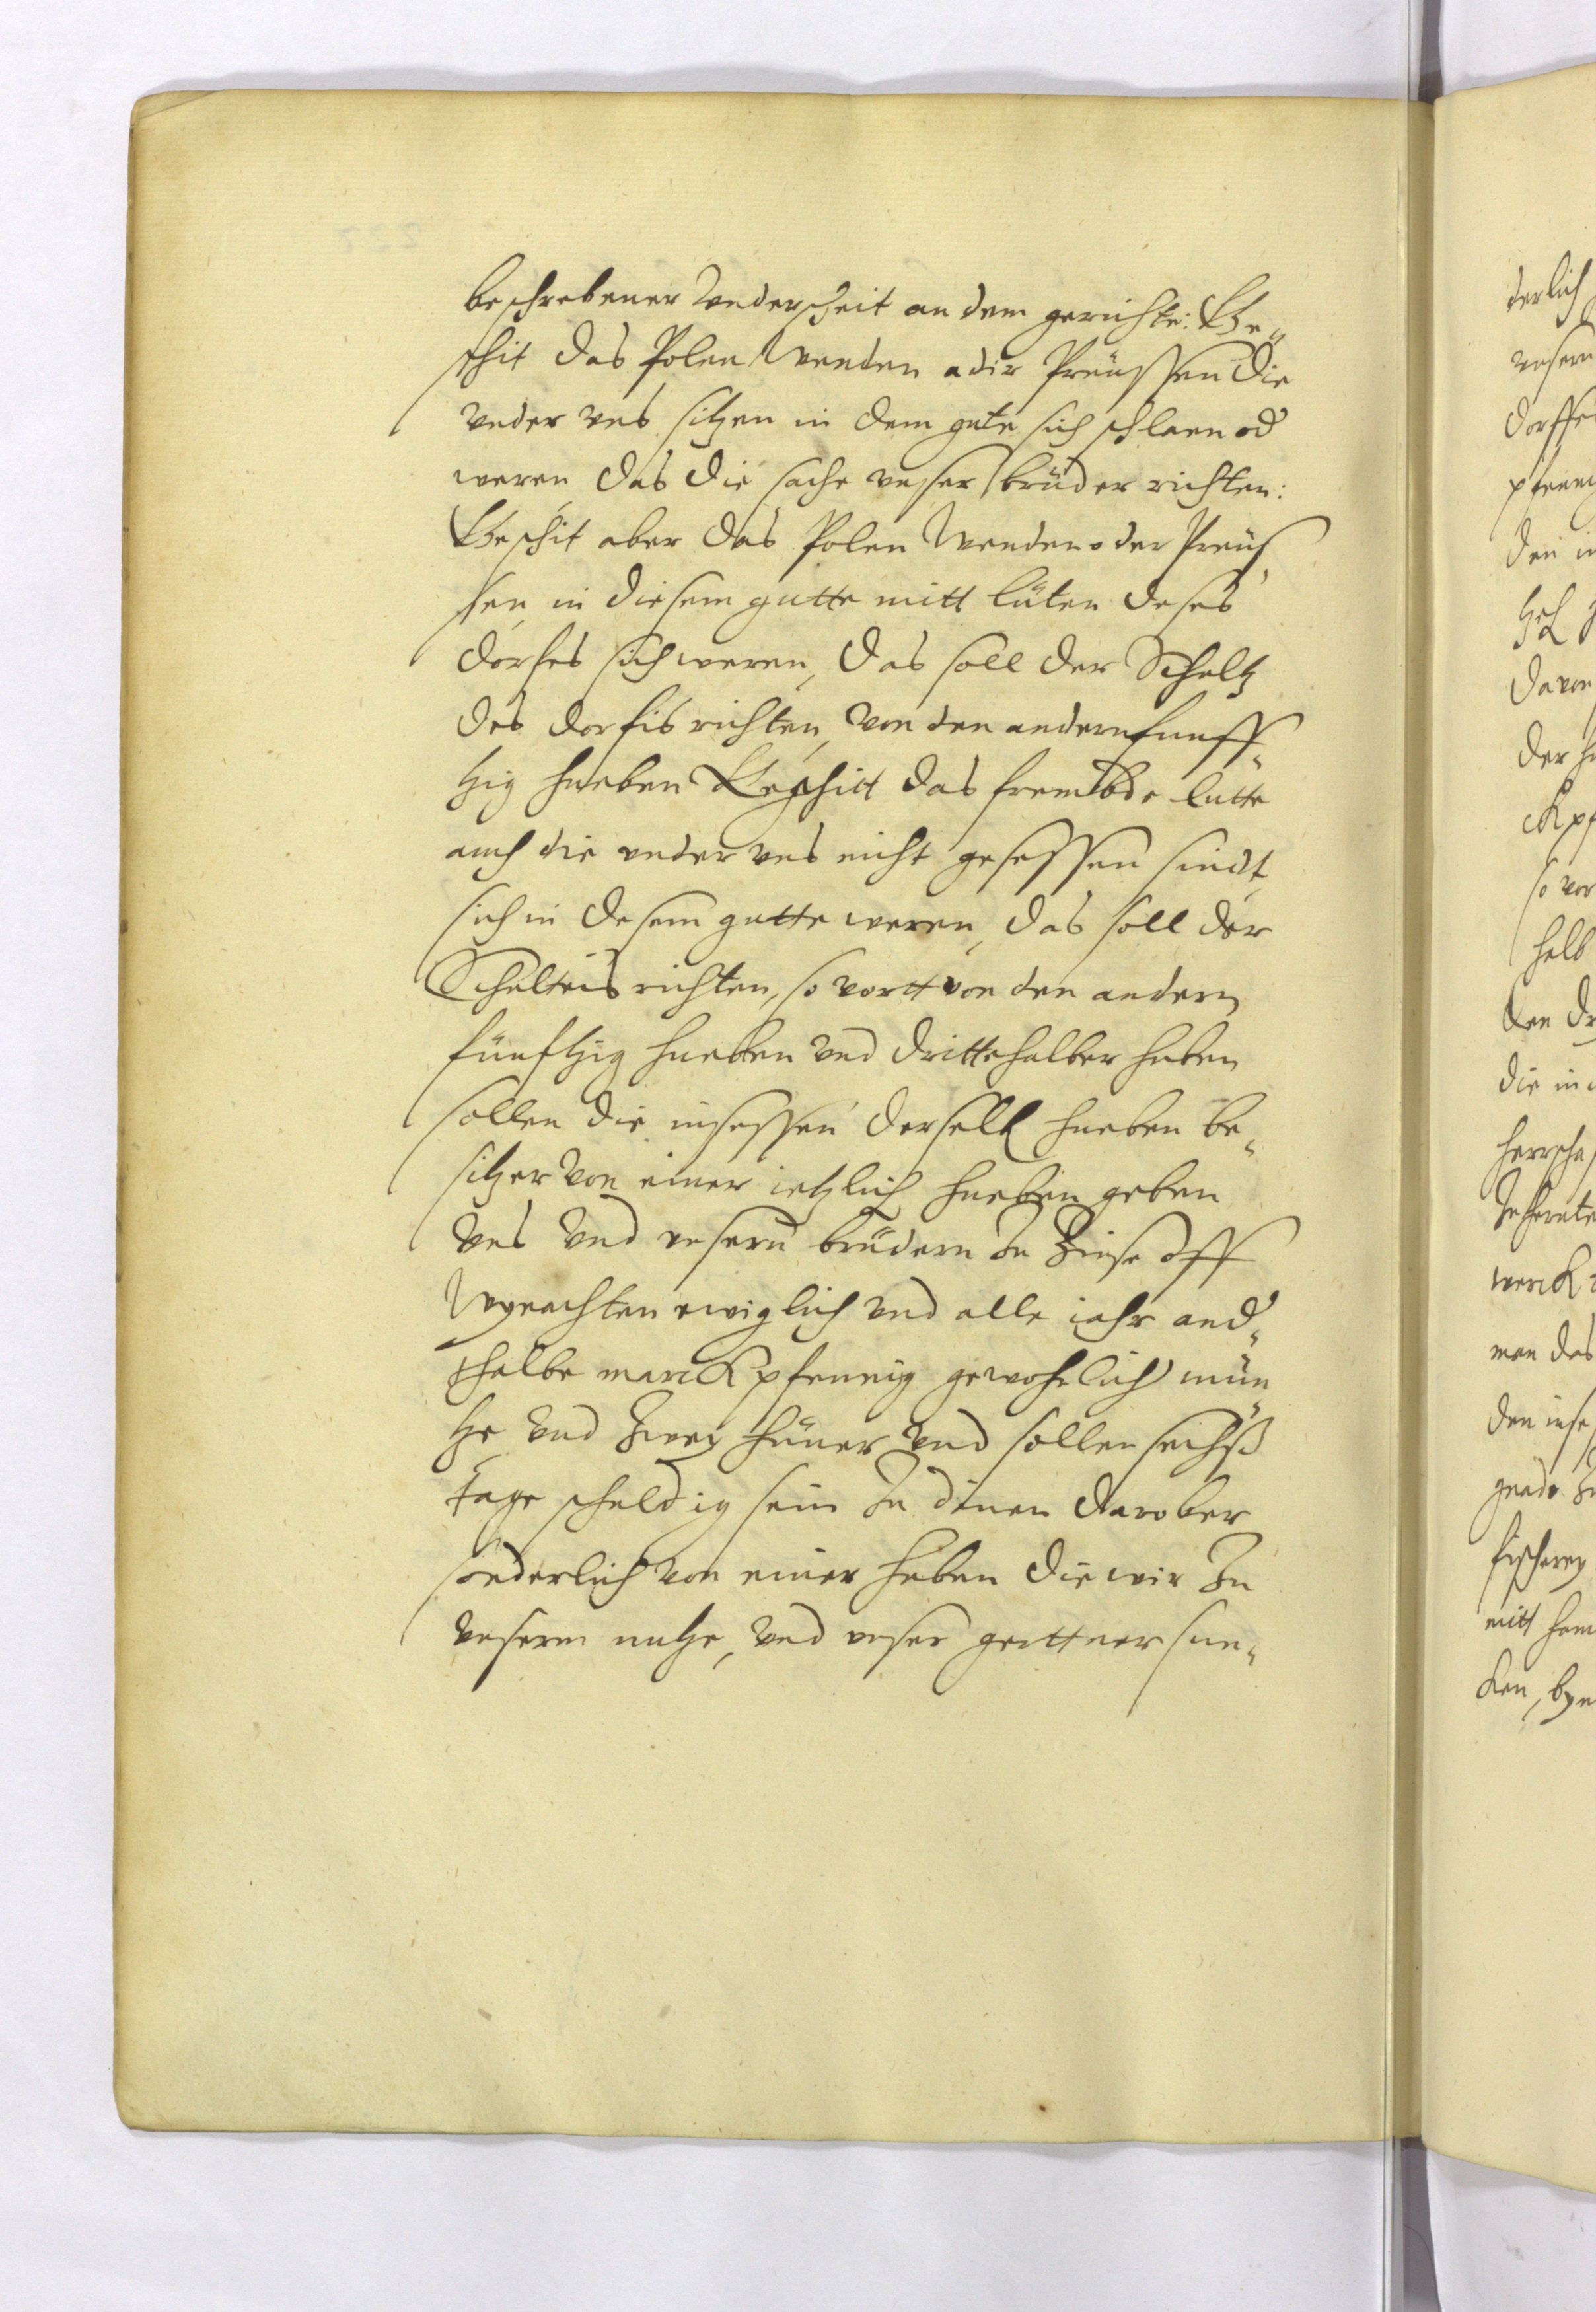 beschrebener Underscheit an dem gerichte: Ge„
schit das Polen Wenden adir Preüssen die
under uns sitzen in dem gute sich schlaen od
weren das die sache unser brüder richten:
Geschit aber das Polen Wenden oder Preüs„
sen in diesem gutte mitt lüten deses
dorfes sich weren, das soll der Scholtz
des dorfis richten, von den andern funff„
tzig hueben Geschitt das frembde lütte
auch die under uns nicht gesessen sindt
sich in desem gutte weren, das soll der
Scholteis richten, so vortt von den andern
fünftzig hueben und drittehalber huben
sollen die insessen derselb hueben be„
sitzer von einer ietzlich hueben geben
uns und unsern brüdern Zu Zinse off
Wynachten ewiglich und alle iahr and„
halbe marck pfennig gewohnlich mün„
tze und Zwey hüner und sollen sechß
tage scholdig sein Zu dinen darober
sonderlich von einer huben die wir Zu
unserm nutze, und unser gerttner sun„
derlich
unsern
dorffe
davon
so vor
halb
den
die in
herrscha
werck
man das
den inse
gnade
fischerey
mitt